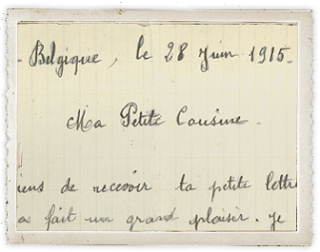 - Belgique, le 28 Juin 1915 -
Ma Petite Cousine.
iens de recevoir ta petite lettre
a fait un grand plaisir. Je